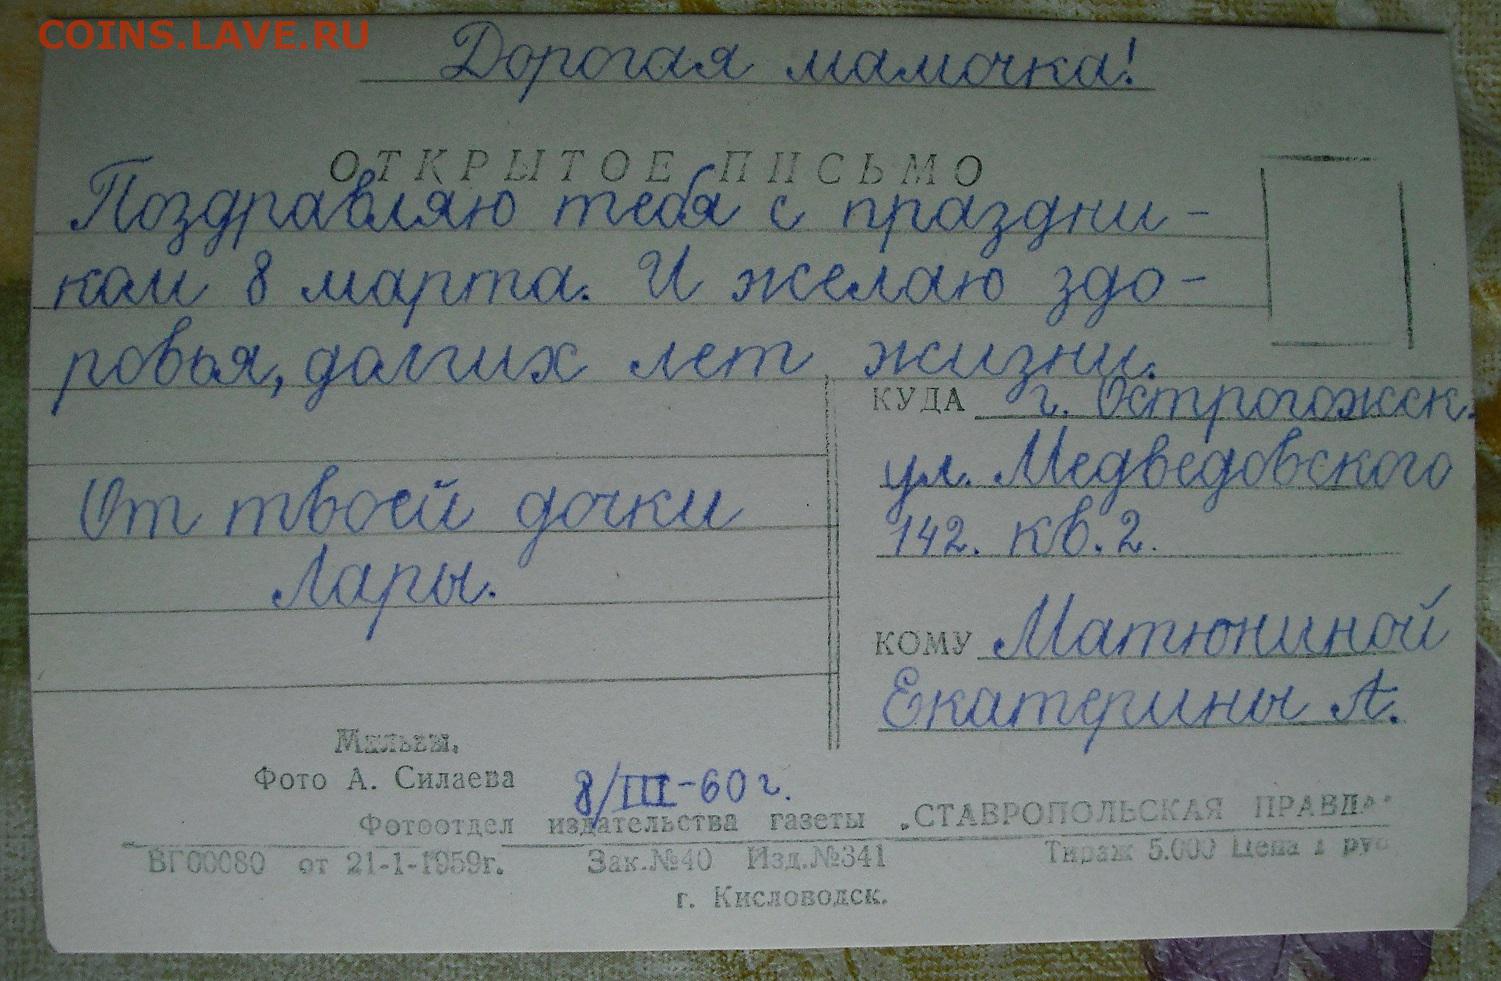 COINS.LAVE.RU
Дорогая мамочка!
ОТКРЫТОЕ ПИСЬМО
Поздравляю тебя с праздни-
ком 8 марта. И желаю здо-
ровья, долгих лет жизни.
От твоей дочки
Лары.
КУДА г. Острогожск.
ул. Медведовского
142. кв. 2.
КОМУ Матюниной
Екатерины А.
Мальвы.
Фото А. Силаева
8/III-60 г.
Фотоотдел издательства газеты „СТАВРОПОЛЬСКАЯ ПРАВДА"
ВГ00080 от 21-1-1959г. Зак.№40 Изд.№341 Тираж 5.000 Цена 1 руб
г. Кисловодск.